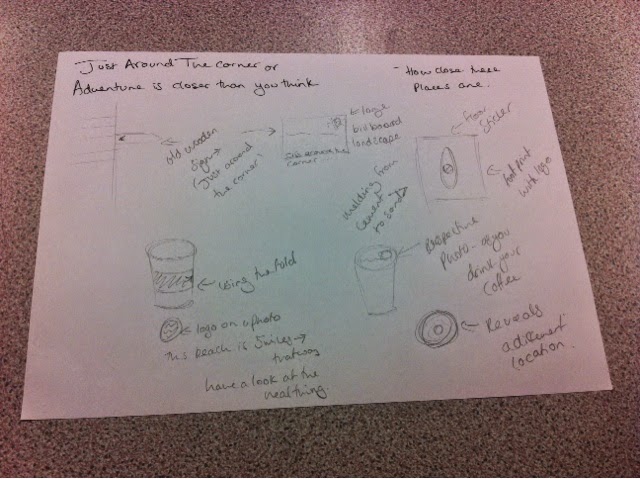 - Just Around The corner or
Adventure is closer than you think
- How close these
Places are.
old wooden
sign →
(Just around
the corner)
← large
billboard
landscape
Just around the
corner
floor
sticker
foot print
with logo
melding from
cement
to sand
← using the fold
← logo on a photo
This beach is 5 miles →
that way
have a look at the
real thing.
Perspective
Photo - as you
drink your
coffee
← Reveals
a different
location.